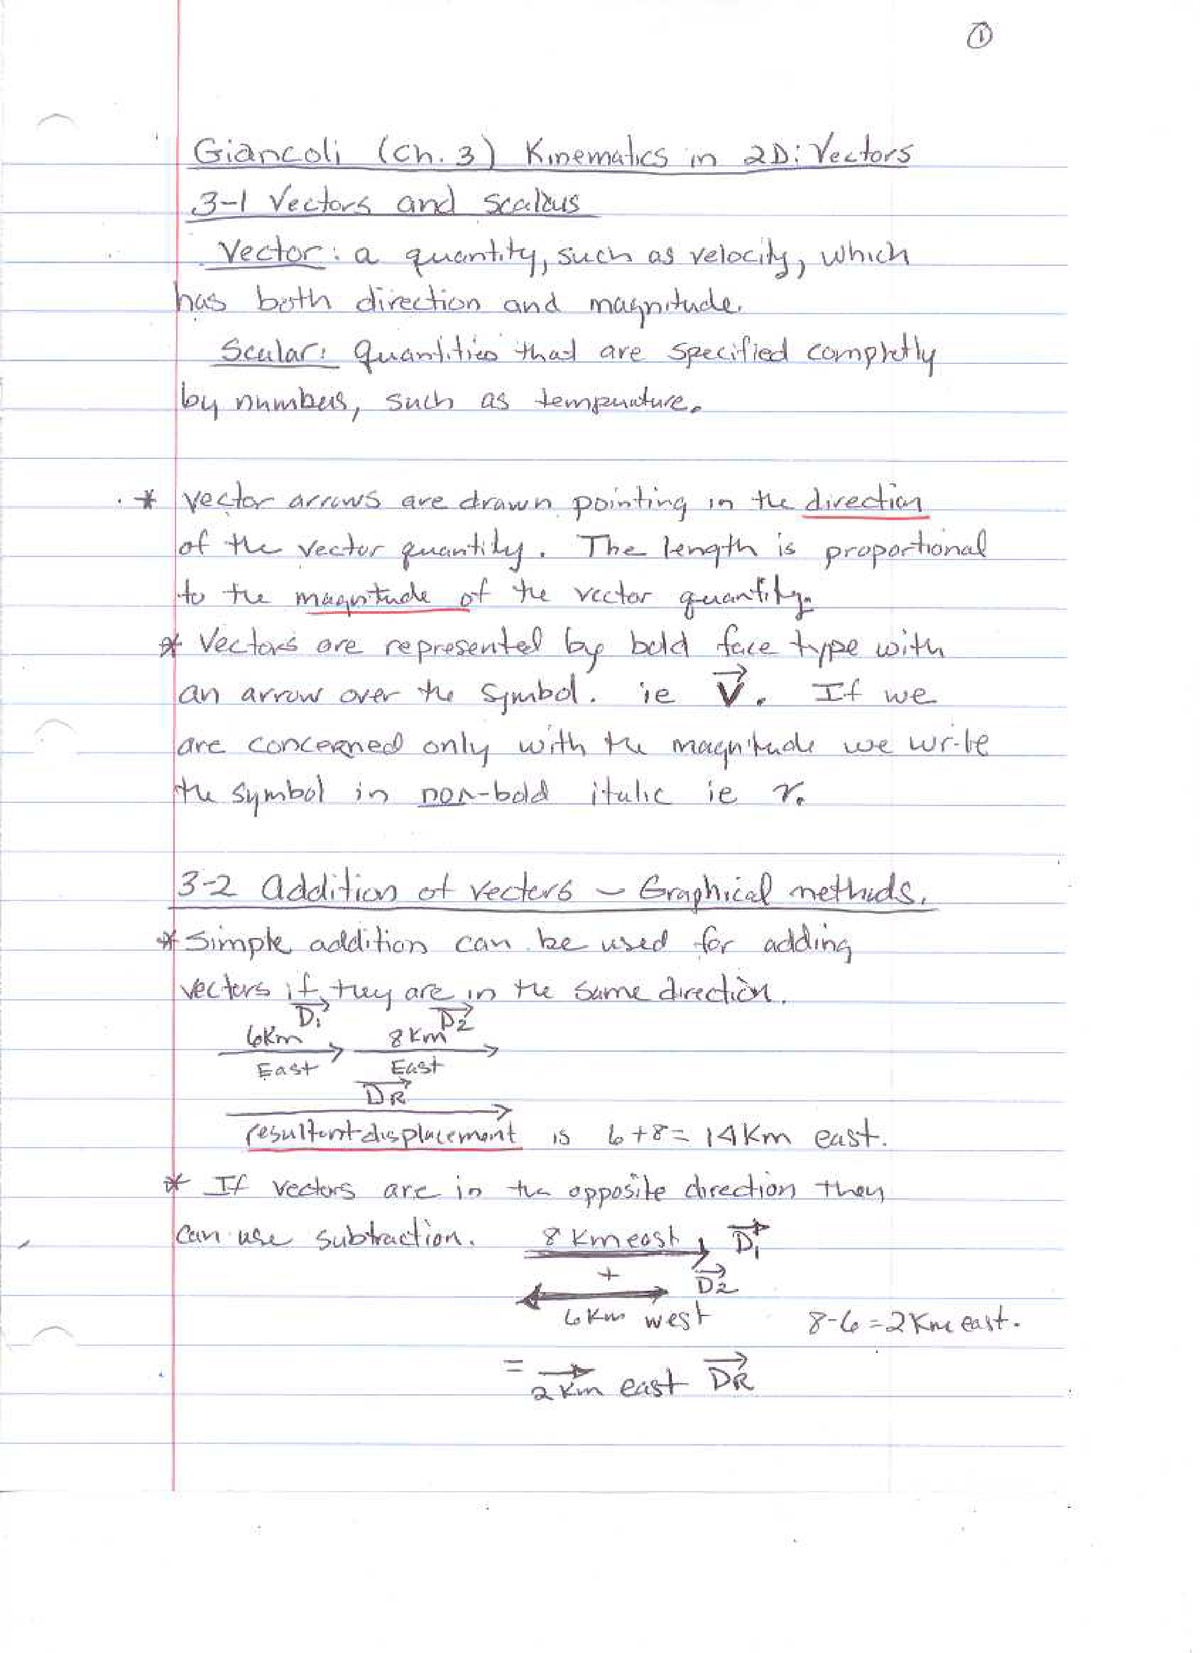 ①
Giancoli (Ch. 3) Kinematics in 2D: Vectors
3-1 Vectors and Scalars
Vector: a quantity, such as velocity, which
has both direction and magnitude.
Scalar: Quantities that are specified completly
by numbers, such as temperature.
* Vector arrows are drawn pointing in the direction
of the vector quantity. The length is proportional
to the magnitude of the vector quantity.
* Vectors are represented by bold face type with
an arrow over the symbol. ie V⃗. If we
are concerned only with the magnitude we write
the symbol in non-bold italic ie v.
3-2 Addition of Vectors - Graphical methods.
* Simple addition can be used for adding
vectors if they are in the same direction.
D⃗1 D⃗2
6Km 8Km
East East
D⃗R
resultant displacement is 6+8= 14Km east.
* If vectors are in the opposite direction they
can use subtraction. 8 Km east D⃗1
+ D⃗2
6Km west 8-6=2Km east.
= 2Km east D⃗R